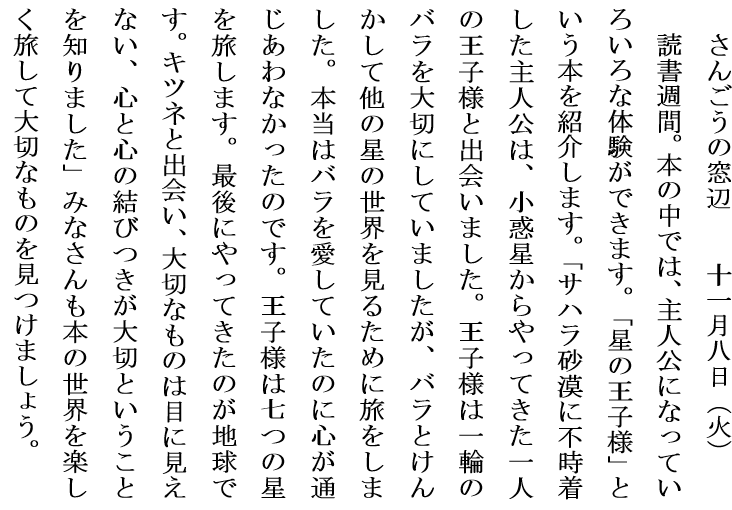 さんごうの窓辺　　十一月八日（火）
読書週間。本の中では、主人公になってい
ろいろな体験ができます。「星の王子様」と
いう本を紹介します。「サハラ砂漠に不時着
した主人公は、小惑星からやってきた一人
の王子様と出会いました。王子様は一輪の
バラを大切にしていましたが、バラとけん
かして他の星の世界を見るために旅をしま
した。本当はバラを愛していたのに心が通
じあわなかったのです。王子様は七つの星
を旅します。最後にやってきたのが地球で
す。キツネと出会い、大切なものは目に見え
ない、心と心の結びつきが大切ということ
を知りました」みなさんも本の世界を楽し
く旅して大切なものを見つけましょう。